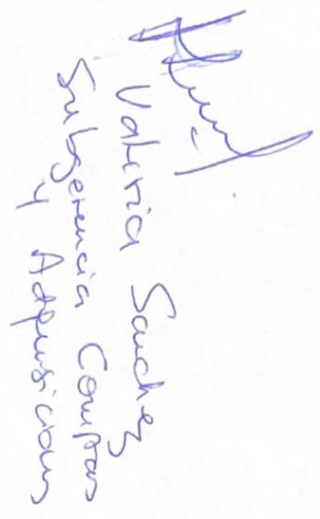 Valeria Sanchez
Subgerencia Compras
y Adquisicion